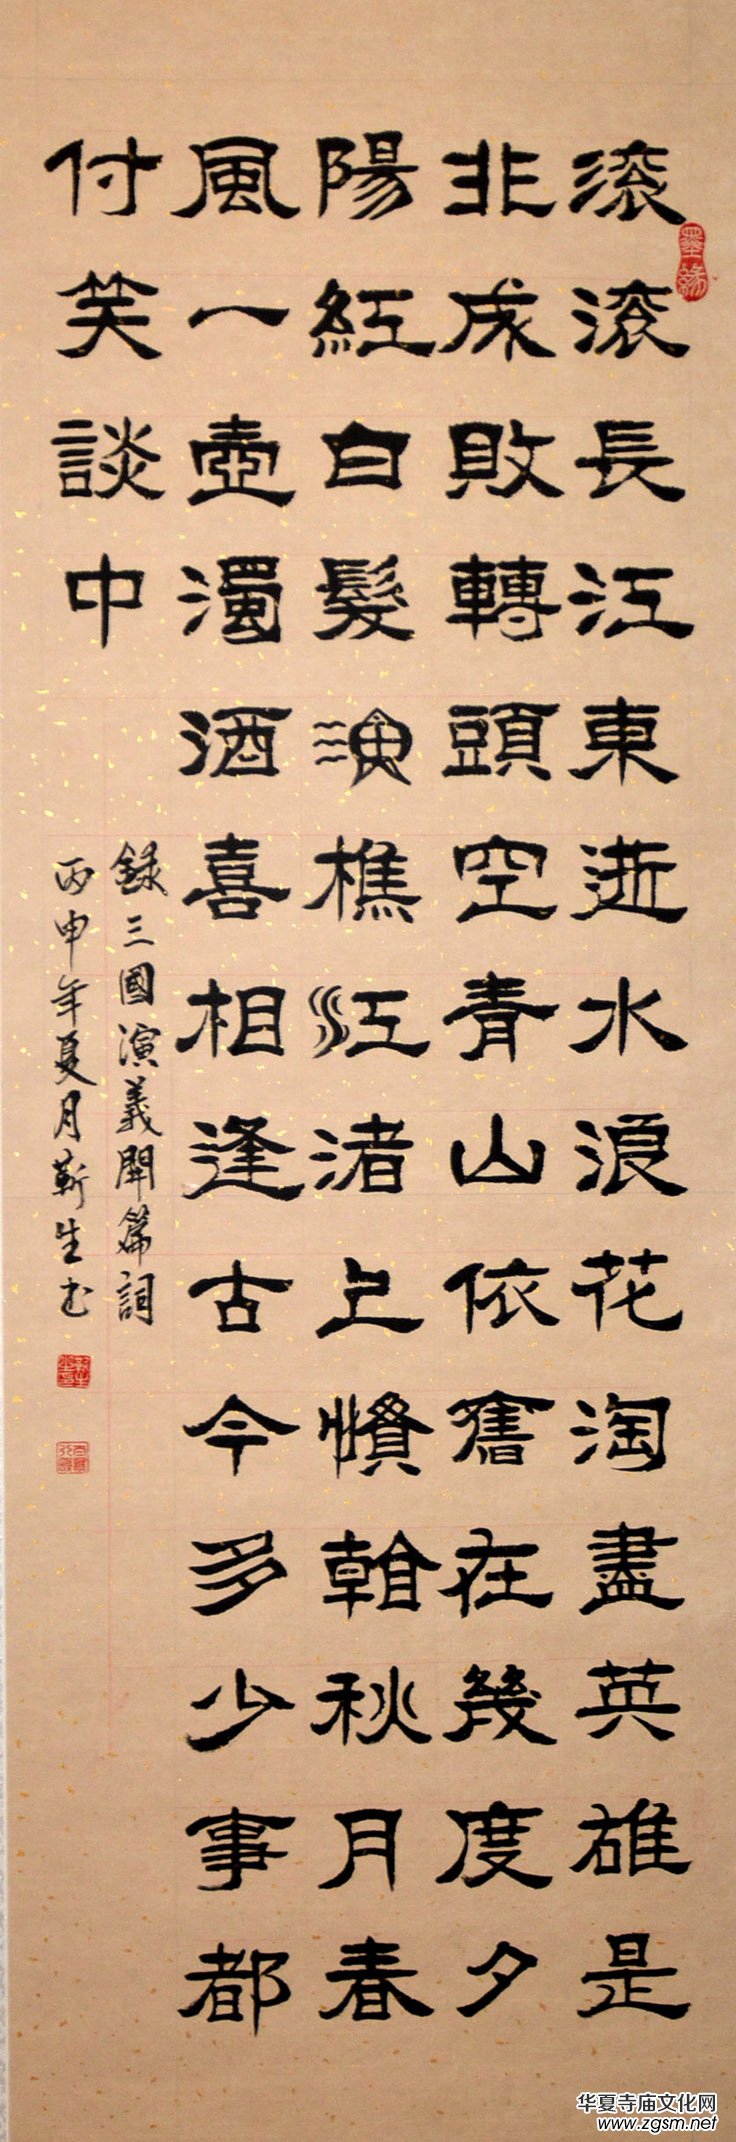 滚滚長江東逝水浪花淘盡英雄是
非成敗轉頭空青山依舊在幾度夕
陽紅白髮漁樵江渚上慣看秋月春
風一壺濁酒喜相逢古今多少事都
付笑談中
録三國演義開篇詞
丙申年夏月靳生书
墨緣
华夏寺庙文化网
www.zgsm.net